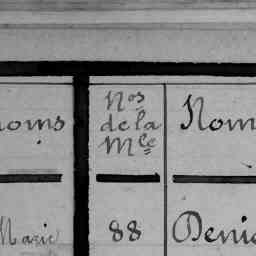 noms Nos de la Mle Nom
Marie 88 Denis